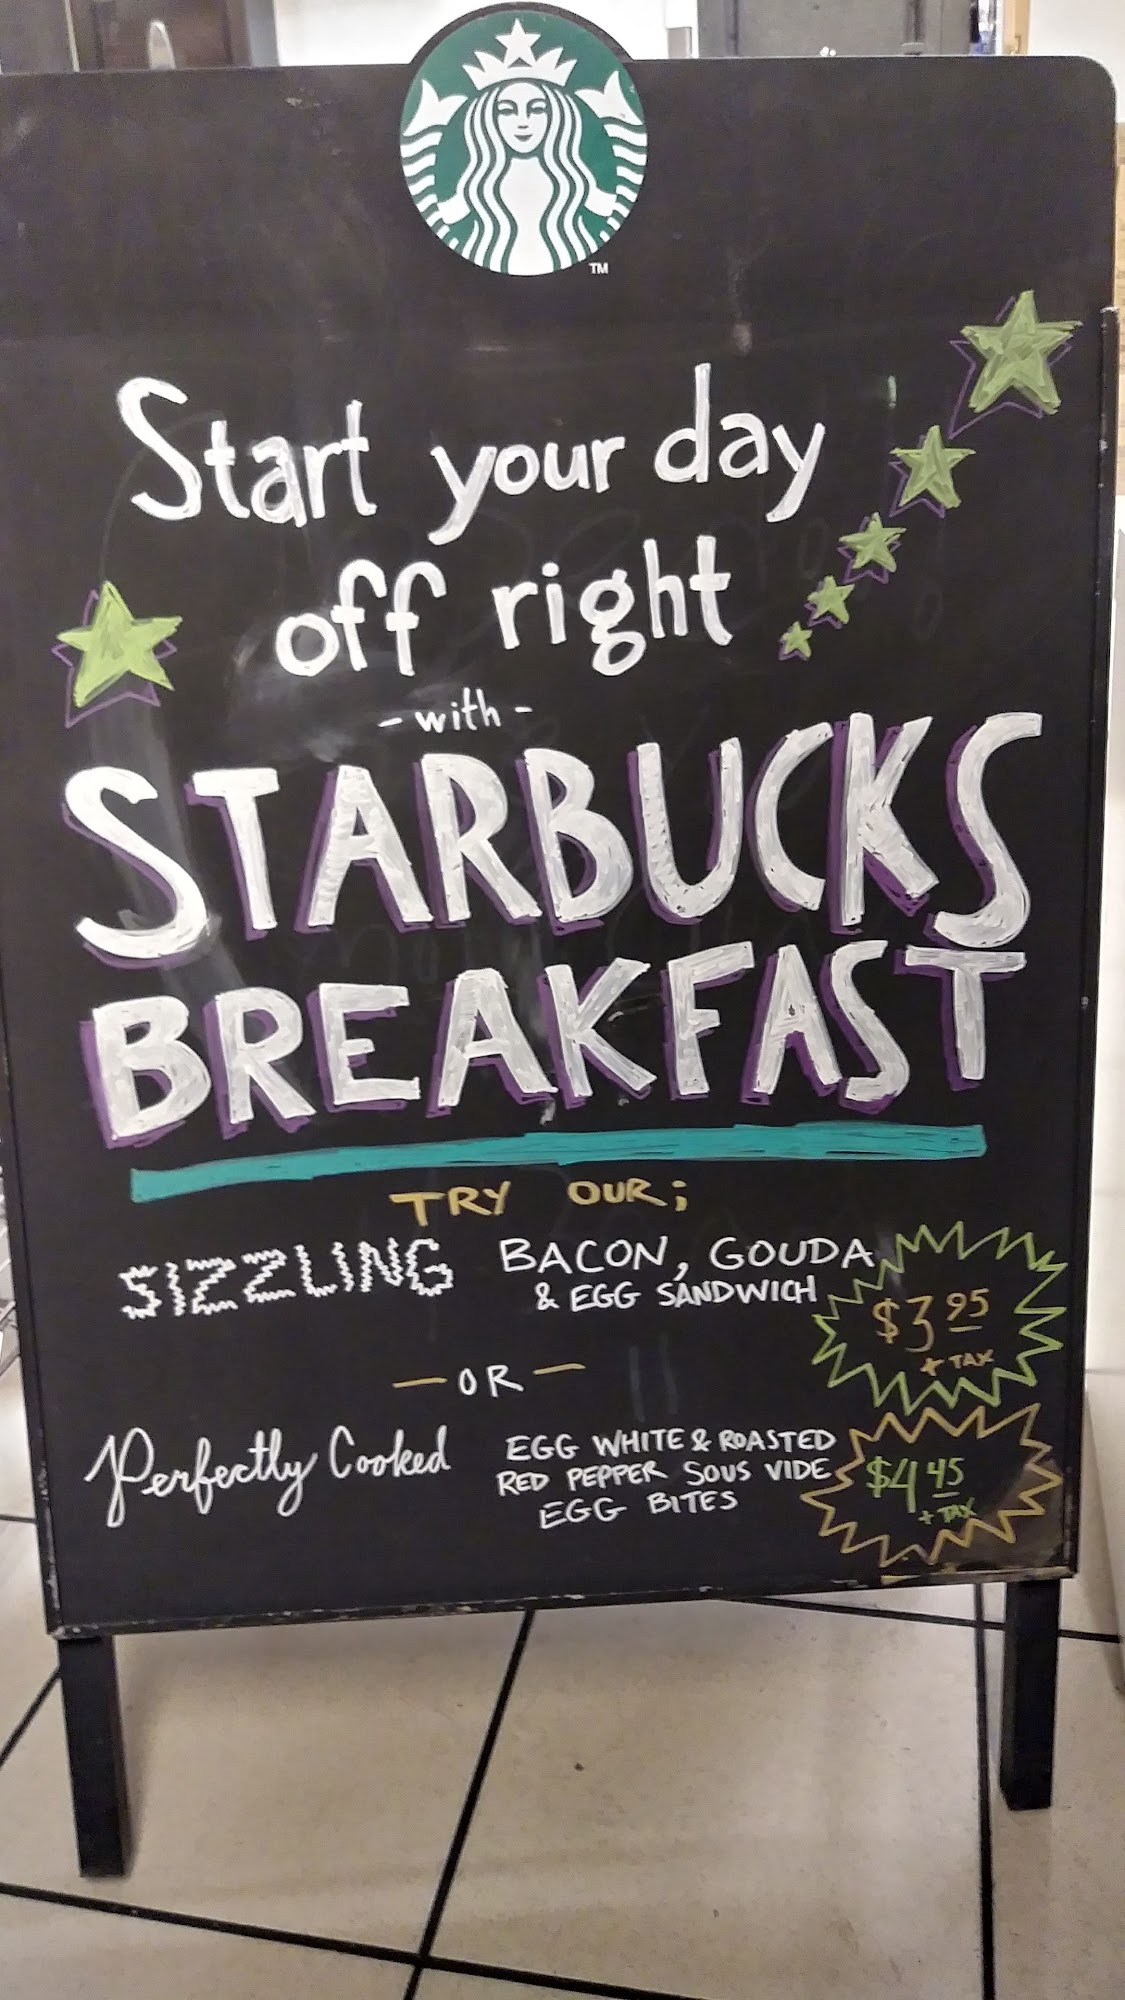 TM
Start your day
off right
- with -
STARBUCKS
BREAKFAST
TRY OUR;
SIZZLING BACON, GOUDA
& EGG SANDWICH
$3 95
+ TAX
— OR —
Perfectly Cooked EGG WHITE & ROASTED
RED PEPPER SOUS VIDE
EGG BITES
$4 45
+ TAX